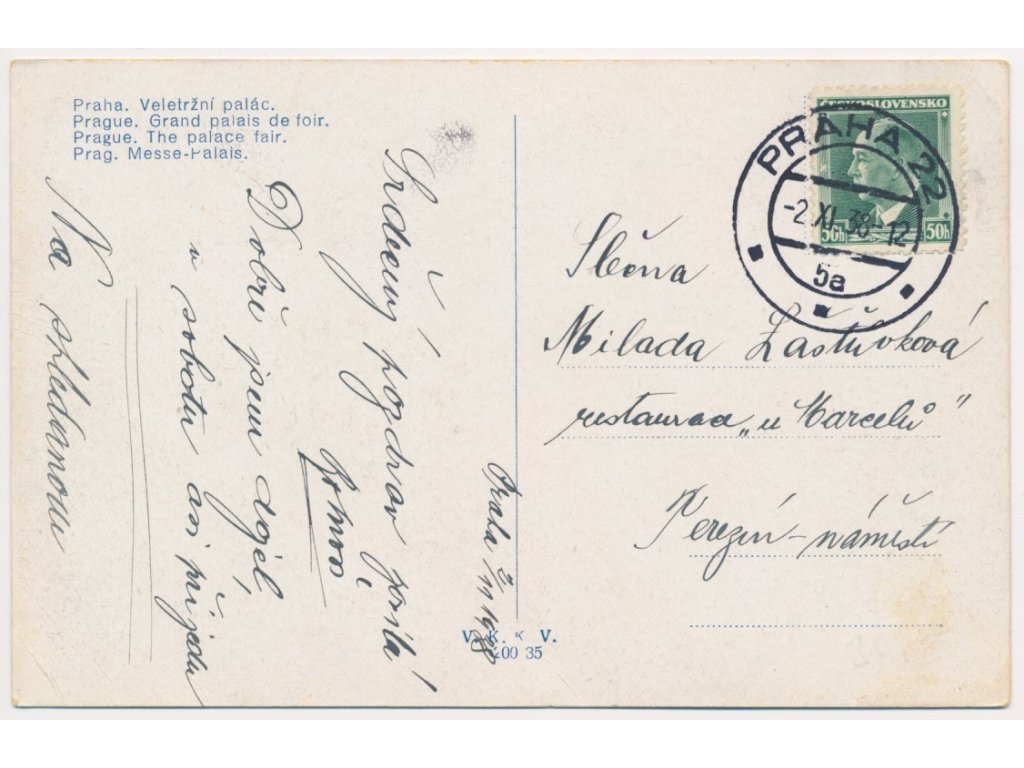 Praha. Veletržní palác.
Prague. Grand palais de foir.
Prague. The palace fair.
Prag. Messe-Palais.
ČESKOSLOVENSKO
50h 50h
PRAHA 22
-2.XI.38-12
5a
Slečna
Milada Laštůvková
restaurace „u Marcelů"
Terezín-náměstí
Praha 2/11 1938
Srdečný pozdrav posílá
Dobře jsem dojel
a v sobotu asi přijedu
Na shledanou
V. K. K V.
200 35